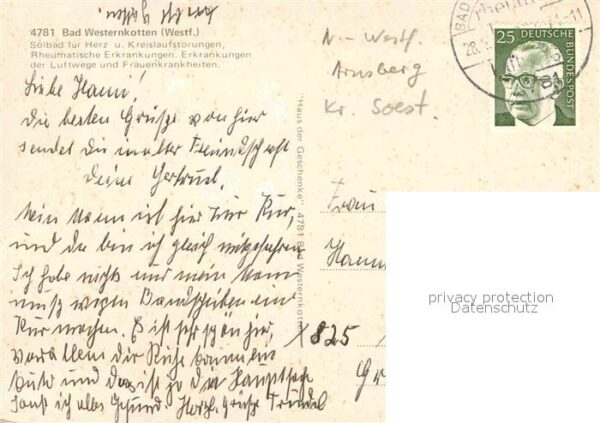 4781 Bad Westernkotten (Westf.)
Solbad für Herz- u. Kreislaufstörungen,
Rheumatische Erkrankungen. Erkrankungen
der Luftwege und Frauenkrankheiten.
Liebe Hanni!
Die besten Grüße von hier
sendet dir in alter Freundschaft
Deine Gertrud.
Mein Mann ist hier zur Kur,
und da bin ich gleich mitgefahren
Ich habe nichts und mein Mann
muß wegen Bandscheiben eine
Kur machen. Es ist sehr schön hier,
vor allem die Ruhe
und das ist ja die Hauptsache
sonst ist alles gesund. Herzl. Grüße Trudel
"Haus der Geschenke" 4781 Bad Westernkotten
N-Westf.
Arnsberg
Kr. Soest.
BAD
rheuma
25
DEUTSCHE
BUNDESPOST
Frau
Hanni
X825
Gr
privacy protection
Datenschutz